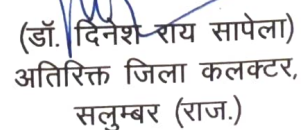 (डॉ. दिनेश राय सापेला)
अतिरिक्त जिला कलक्टर,
सलुम्बर (राज.)